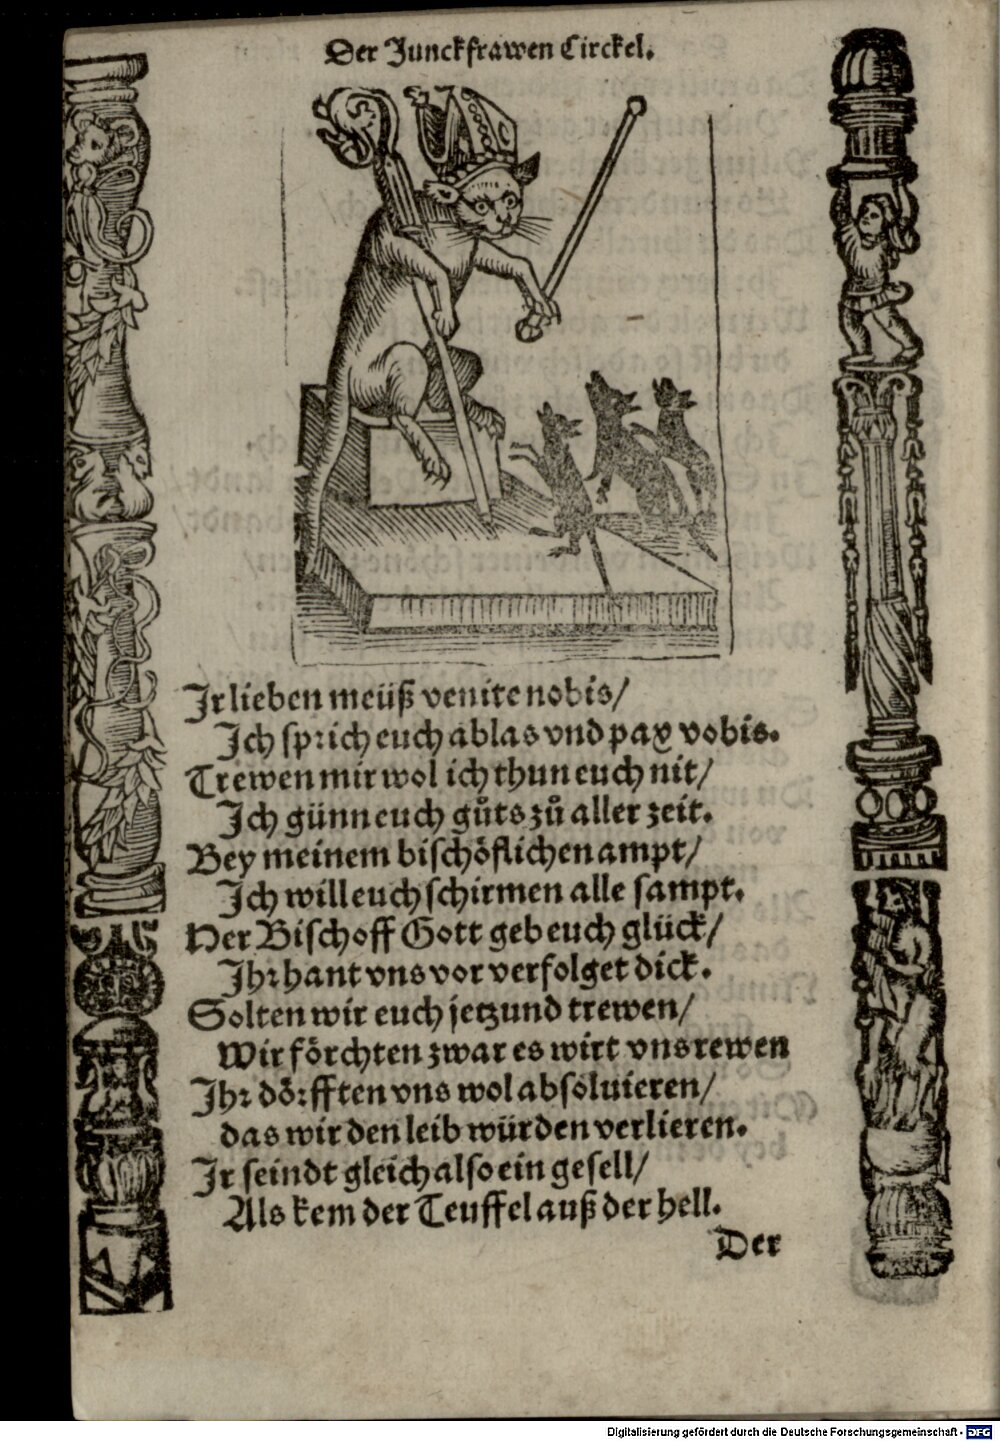 Der Junckfrawen Circkel.
Jr lieben meüß venite nobis/
Jch sprich euch ablas vnd pax vobis.
Trewen mir wol ich thun euch nit/
Jch günn euch gůts zů aller zeit.
Bey meinem bischöflichen ampt/
Jch will euch schirmen alle sampt.
Her Bischoff Gott geb euch glück/
Jhr hant vns vor verfolget dick.
Solten wir euch jetzund trewen/
Wir förchten zwar es wirt vns rewen
Jhr dörfften vns wol absoluieren/
das wir den leib würden verlieren.
Jr seindt gleich also ein gesell/
Als kem der Teuffel auß der hell.
Der
Digitalisierung gefördert durch die Deutsche Forschungsgemeinschaft - DFG